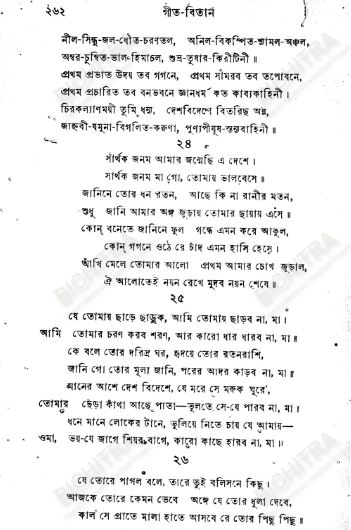 ২৬২ গীত-বিতান
নীল-সিন্ধু-জল-ধৌত-চরণতল, অনিল-বিকম্পিত-শ্যামল-অঞ্চল,
অম্বর-চুম্বিত-ভাল-হিমাচল, শুভ্র-তুষার-কিরীটিনী॥
প্রথম প্রভাত উদয় তব গগনে, প্রথম সামরব তব তপোবনে,
প্রথম প্রচারিত তব বনভবনে জ্ঞানধর্ম্ম কত কাব্যকাহিনী।
চিরকল্যাণময়ী তুমি ধন্য, দেশবিদেশে বিতরিছ অন্ন,
জাহ্নবী-যমুনা-বিগলিত-করুণা, পুণ্যপীযূষ-স্তন্যবাহিনী॥
২৪
সার্থক জনম আমার জন্মেছি এ দেশে।
সার্থক জনম মা গো, তোমায় ভালবেসে॥
জানিনে তোর ধন রতন, আছে কি না রানীর মতন,
শুধু জানি আমার অঙ্গ জুড়ায় তোমার ছায়ায় এসে॥
কোন্ বনেতে জানিনে ফুল গন্ধে এমন করে আকুল,
কোন্ গগনে ওঠে রে চাঁদ এমন হাসি হেসে।
আঁখি মেলে তোমার আলো প্রথম আমার চোখ জুড়াল,
ঐ আলোতেই নয়ন রেখে মুদব নয়ন শেষে॥
২৫
যে তোমায় ছাড়ে ছাড়ুক, আমি তোমায় ছাড়ব না, মা।
আমি তোমার চরণ করব শরণ, আর কারো ধার ধারব না, মা॥
কে বলে তোর দরিদ্র ঘর, হৃদয়ে তোর রতনরাশি,
জানি গো তোর মূল্য জানি, পরের আদর কাড়ব না, মা॥
মানের আশে দেশ বিদেশে, যে মরে সে মরুক ঘুরে',
তোমার ছেঁড়া কাঁথা আছে পাতা—ভুলতে সে-যে পারব না, মা।
ধনে মানে লোকের টানে, ভুলিয়ে নিতে চায় যে আমায়—
ওমা, ভয়-যে জাগে শিয়র-বাগে, কারো কাছে হারব না, মা॥
২৬
যে তোরে পাগল বলে, তারে তুই বলিসনে কিছু।
আজকে তোরে কেমন ভেবে অঙ্গে যে তোর ধূলা দেবে,
কাল সে প্রাতে মালা হাতে আসবে রে তোর পিছু পিছু॥
BICHITRA